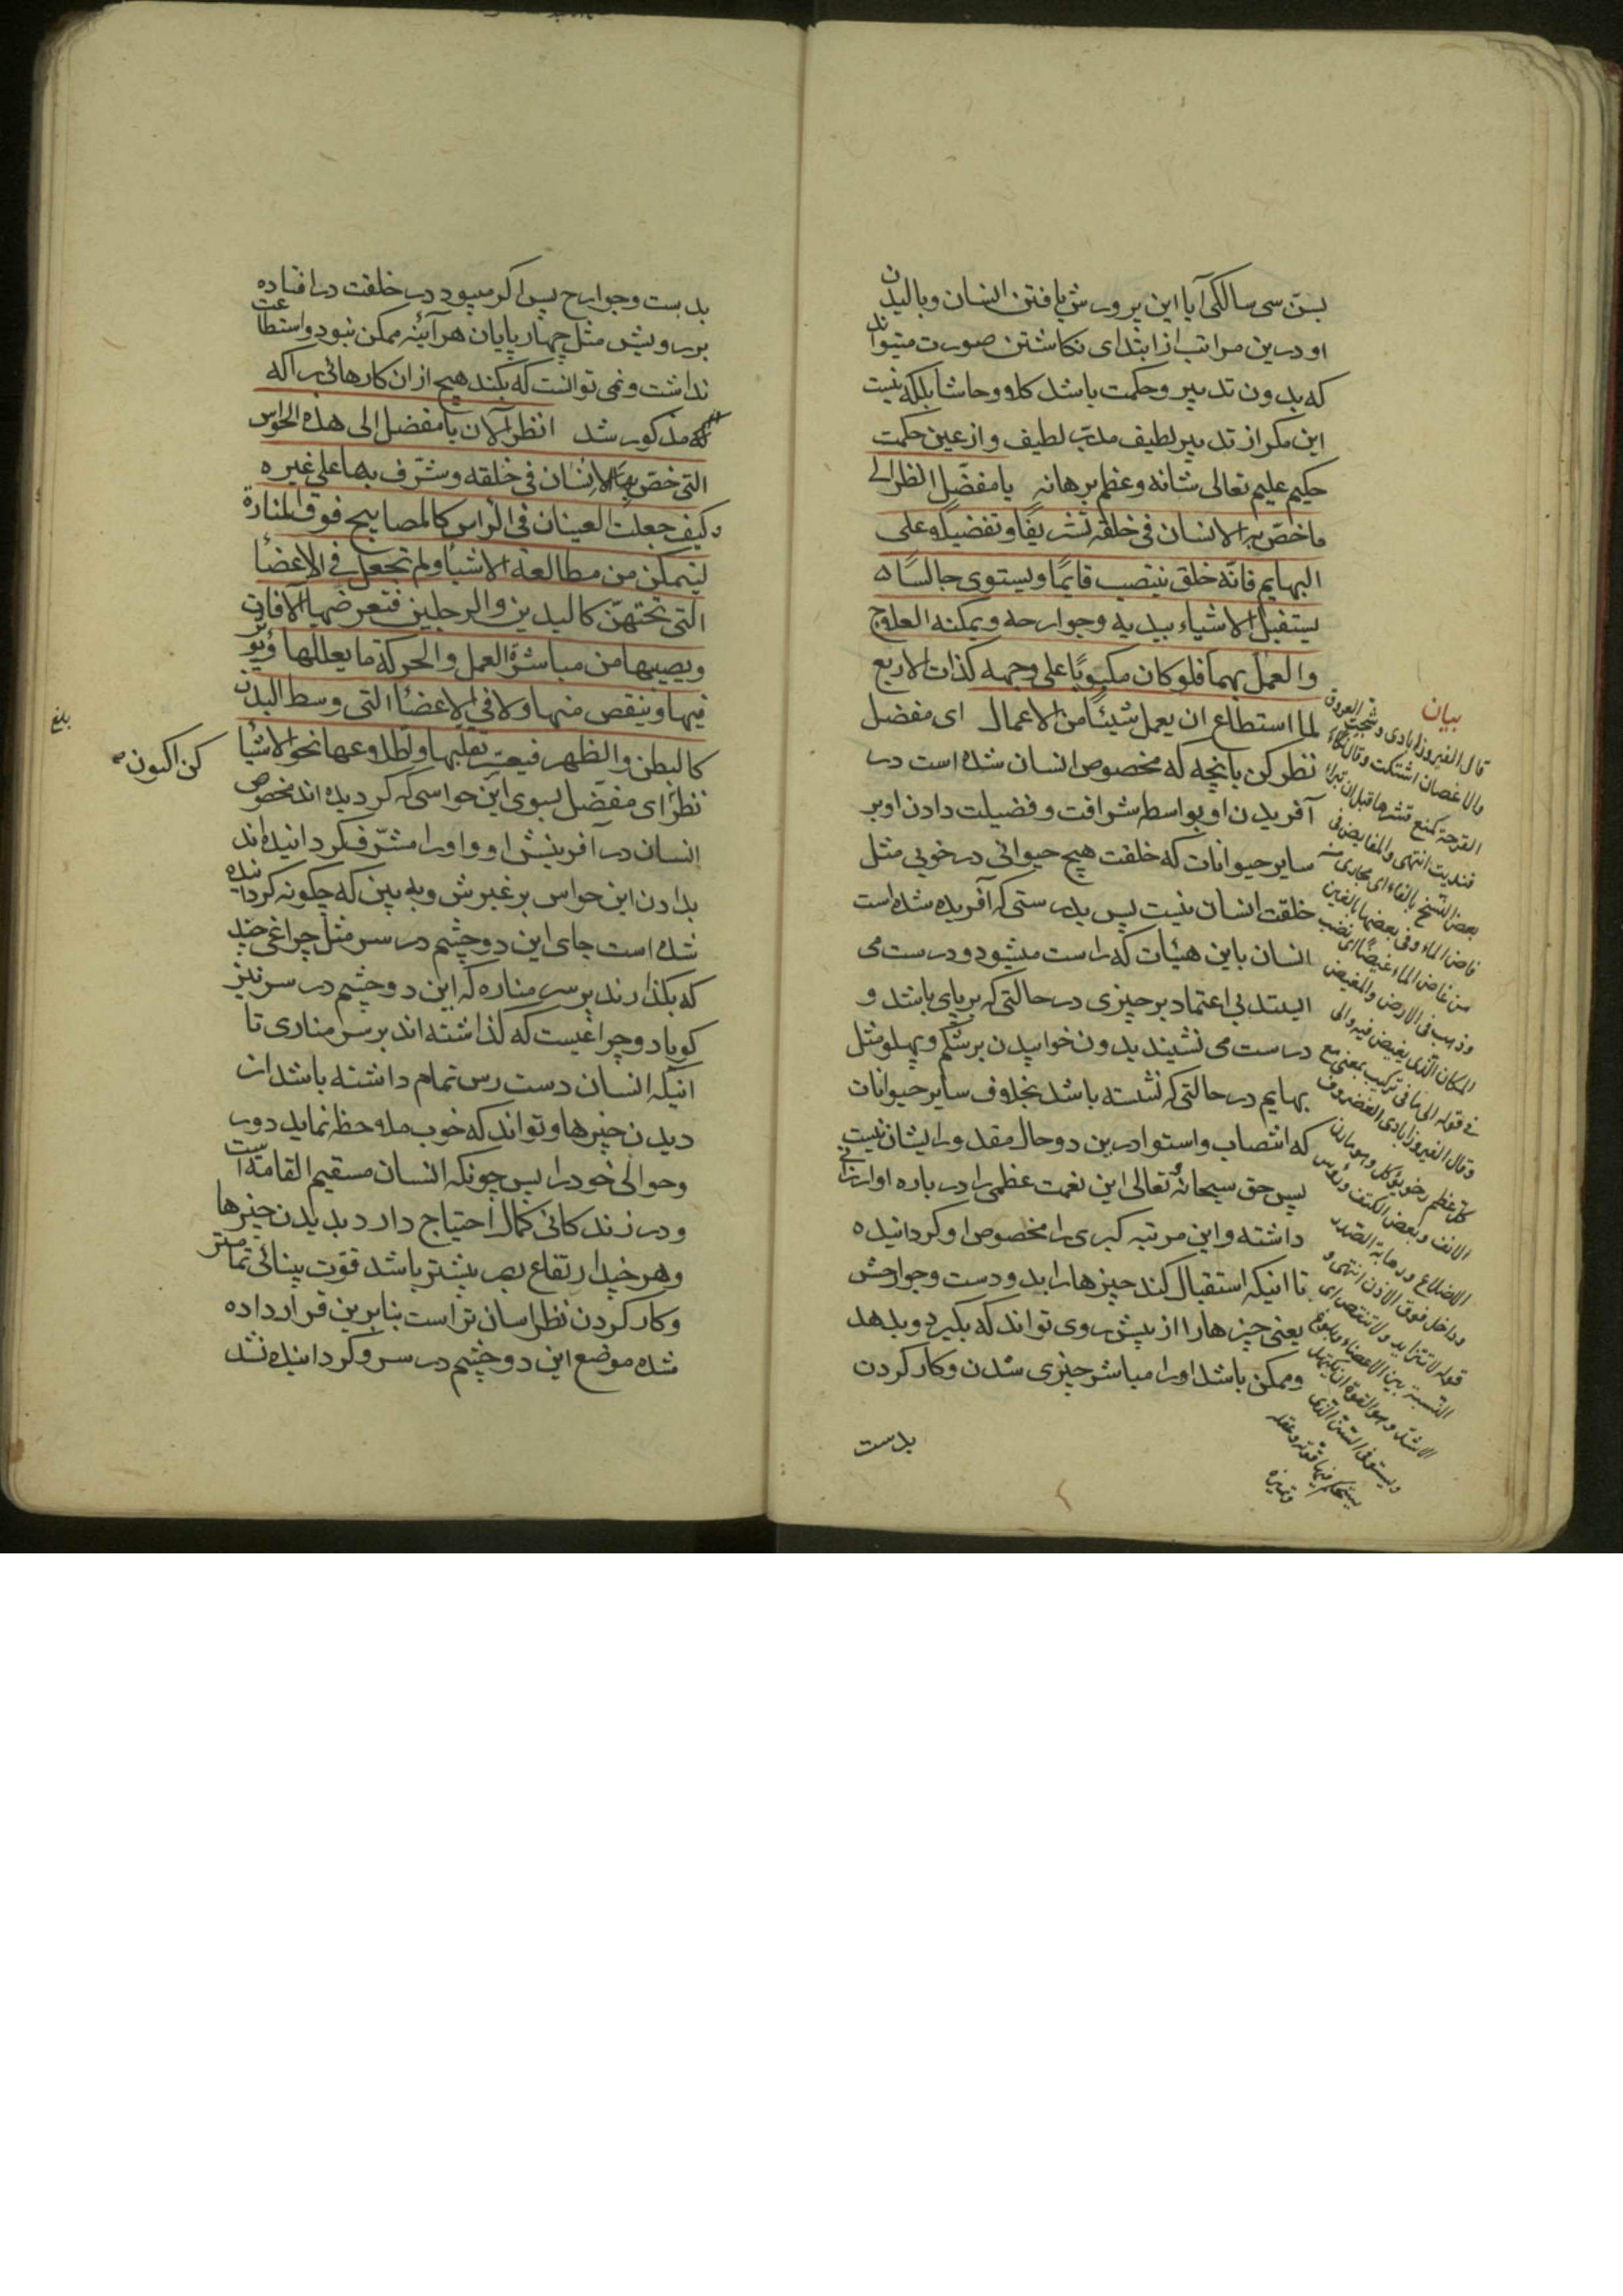 بسنّ سی سالکی آیا این پرورش یافتن انسان و بالیدن
او درین مراتب از ابتدای نکاشتن صورت میتواند
که بدون تدبیر و حکمت باشد کلا و حاشا بلکه نیست
این مکر از تدبیر لطیف مدبّر لطیف و از عین حکمت
حکیم علیم تعالی شانه و عظم برهانه یا مفضّل انظر الی
ما خصّ به الانسان فی خلقه تشریفًا و تفضیلًا علی
البهایم فانّه خلق ینتصب قایمًا و یستوی جالسًا
یستقبل الاشیاء بیدیه و جوارحه و یمکنه العلاج
و العمل بهما فلو کان مکبوبًا علی وجهه کذات الاربع
لما استطاع ان یعمل شیئًا من الاعمال ای مفضل
نظر کن بانچه که مخصوص انسان شده است در
آفریدن او بواسطه شرافت و فضیلت دادن او بر
سایر حیوانات که خلقت هیچ حیوانی در خوبی مثل
خلقت انسان نیست پس بدرستی که آفریده شده است
انسان باین هیئات که راست میشود و درست می
ایستد بی اعتماد بر چیزی در حالتی که بر پای باشد و
درست می نشیند بدون خوابیدن بر شکم و پهلو مثل
بهایم در حالتی که نشسته باشد بخلاف سایر حیوانات
که انتصاب و استوا درین دو حال مقدور ایشان نیست
پس حق سبحانهٔ و تعالی این نعمت عظمی را در باره او ارزانی
داشته و این مرتبه کبری را مخصوص او کردانیده
تا اینکه استقبال کند چیزها را بدو دست و جوارحش
یعنی چیزها را از پیش روی تواند که بکیرد و بدهد
و ممکن باشد او را مباشر چیزی شدن و کار کردن
بدست
بیان
قال الفیروزابادی و شجت العروق
و الاغصان اشتبکت و قال نکأ
القرحة کمنع قشرها قبل ان تبرأ
فندیت انتهی و المفایض فی
بعض النسخ بالفاء ای مجاری من
فاض الماء و فی بعضها بالغین
من غاض الماء غیضًا ای نضب
و ذهب فی الارض و المغیض
المکان الذی یغیض فیه و الی
فی قوله الی ما فی ترکیب بمعنی مع
و قال الفیروزابادی الغضروف
کلّ عظم رخو یؤکل و هو مارن
الانف و نغض الکتف و رؤس
الاضلاع و رهابة الصدر
و داخل قوف الاذن انتهی و
قوله لا تتزاید و لا تنتقص ای
النسبة بین الاعضاء و بلوغ
الاشدّ و هو القوة ان یکتهل
و یستوفی السنّ الذی
یستحکم فیها قوته و عقله
و تمیزه
بدست و جوارح پس اکر میبود در خلقت در افتاده
بر رویش مثل چهار پایان هر آئینه ممکن نبود و استطاعت
نداشت و نمی توانست که بکند هیچ از ان کارهائی را که
که مذکور شد انظر الآن یا مفضل الی هذه الحواس
التی خصّ بها الانسان فی خلقه و شرّف بها علی غیره
کیف جعلت العینان فی الراس کالمصابیح فوق المنارة
لیتمکن من مطالعة الاشیاء و لم تجعل فی الاعضأ
التی تحتهنّ کالیدین و الرجلین فتعرضها الافات
و یصیبها من مباشرة العمل و الحرکة ما یعللها و یؤثر
فیها و ینقص منها و لا فی الاعضأ التی وسط البدن
کالبطن و الظهر فیعسر تقلبها و اطلاعها نحو الاشیأ
نظر ای مفضل بسوی این حواسی که کردیده اند مخصوص
انسان در آفرینش او و او را مشرّف کردانیده اند
بدادن این حواس بر غیرش و به بین که چکونه کردانیده
شده است جای این دو چشم در سر مثل چراغی چند
که بکذارند بر سر مناره که این دو چشم در سر نیز
کویا دو چراغیست که کذاشته اند بر سر مناری تا
اینکه انسان دست رس تمام داشته باشد از
دیدن چیزها و تواند که خوب ملاحظه نماید دور
و حوالی خود را پس چونکه انسان مستقیم القامة است
و در زندکانی کمال احتیاج دارد بدیدن چیزها
و هر چند ارتفاع بصر بیشتر باشد قوّت بینائی تمامتر
و کار کردن نظر اسان تر است بنابرین قرار داده
شده موضع این دو چشم در سر و کردانیده نشد
کن اکنون صح
بلغ